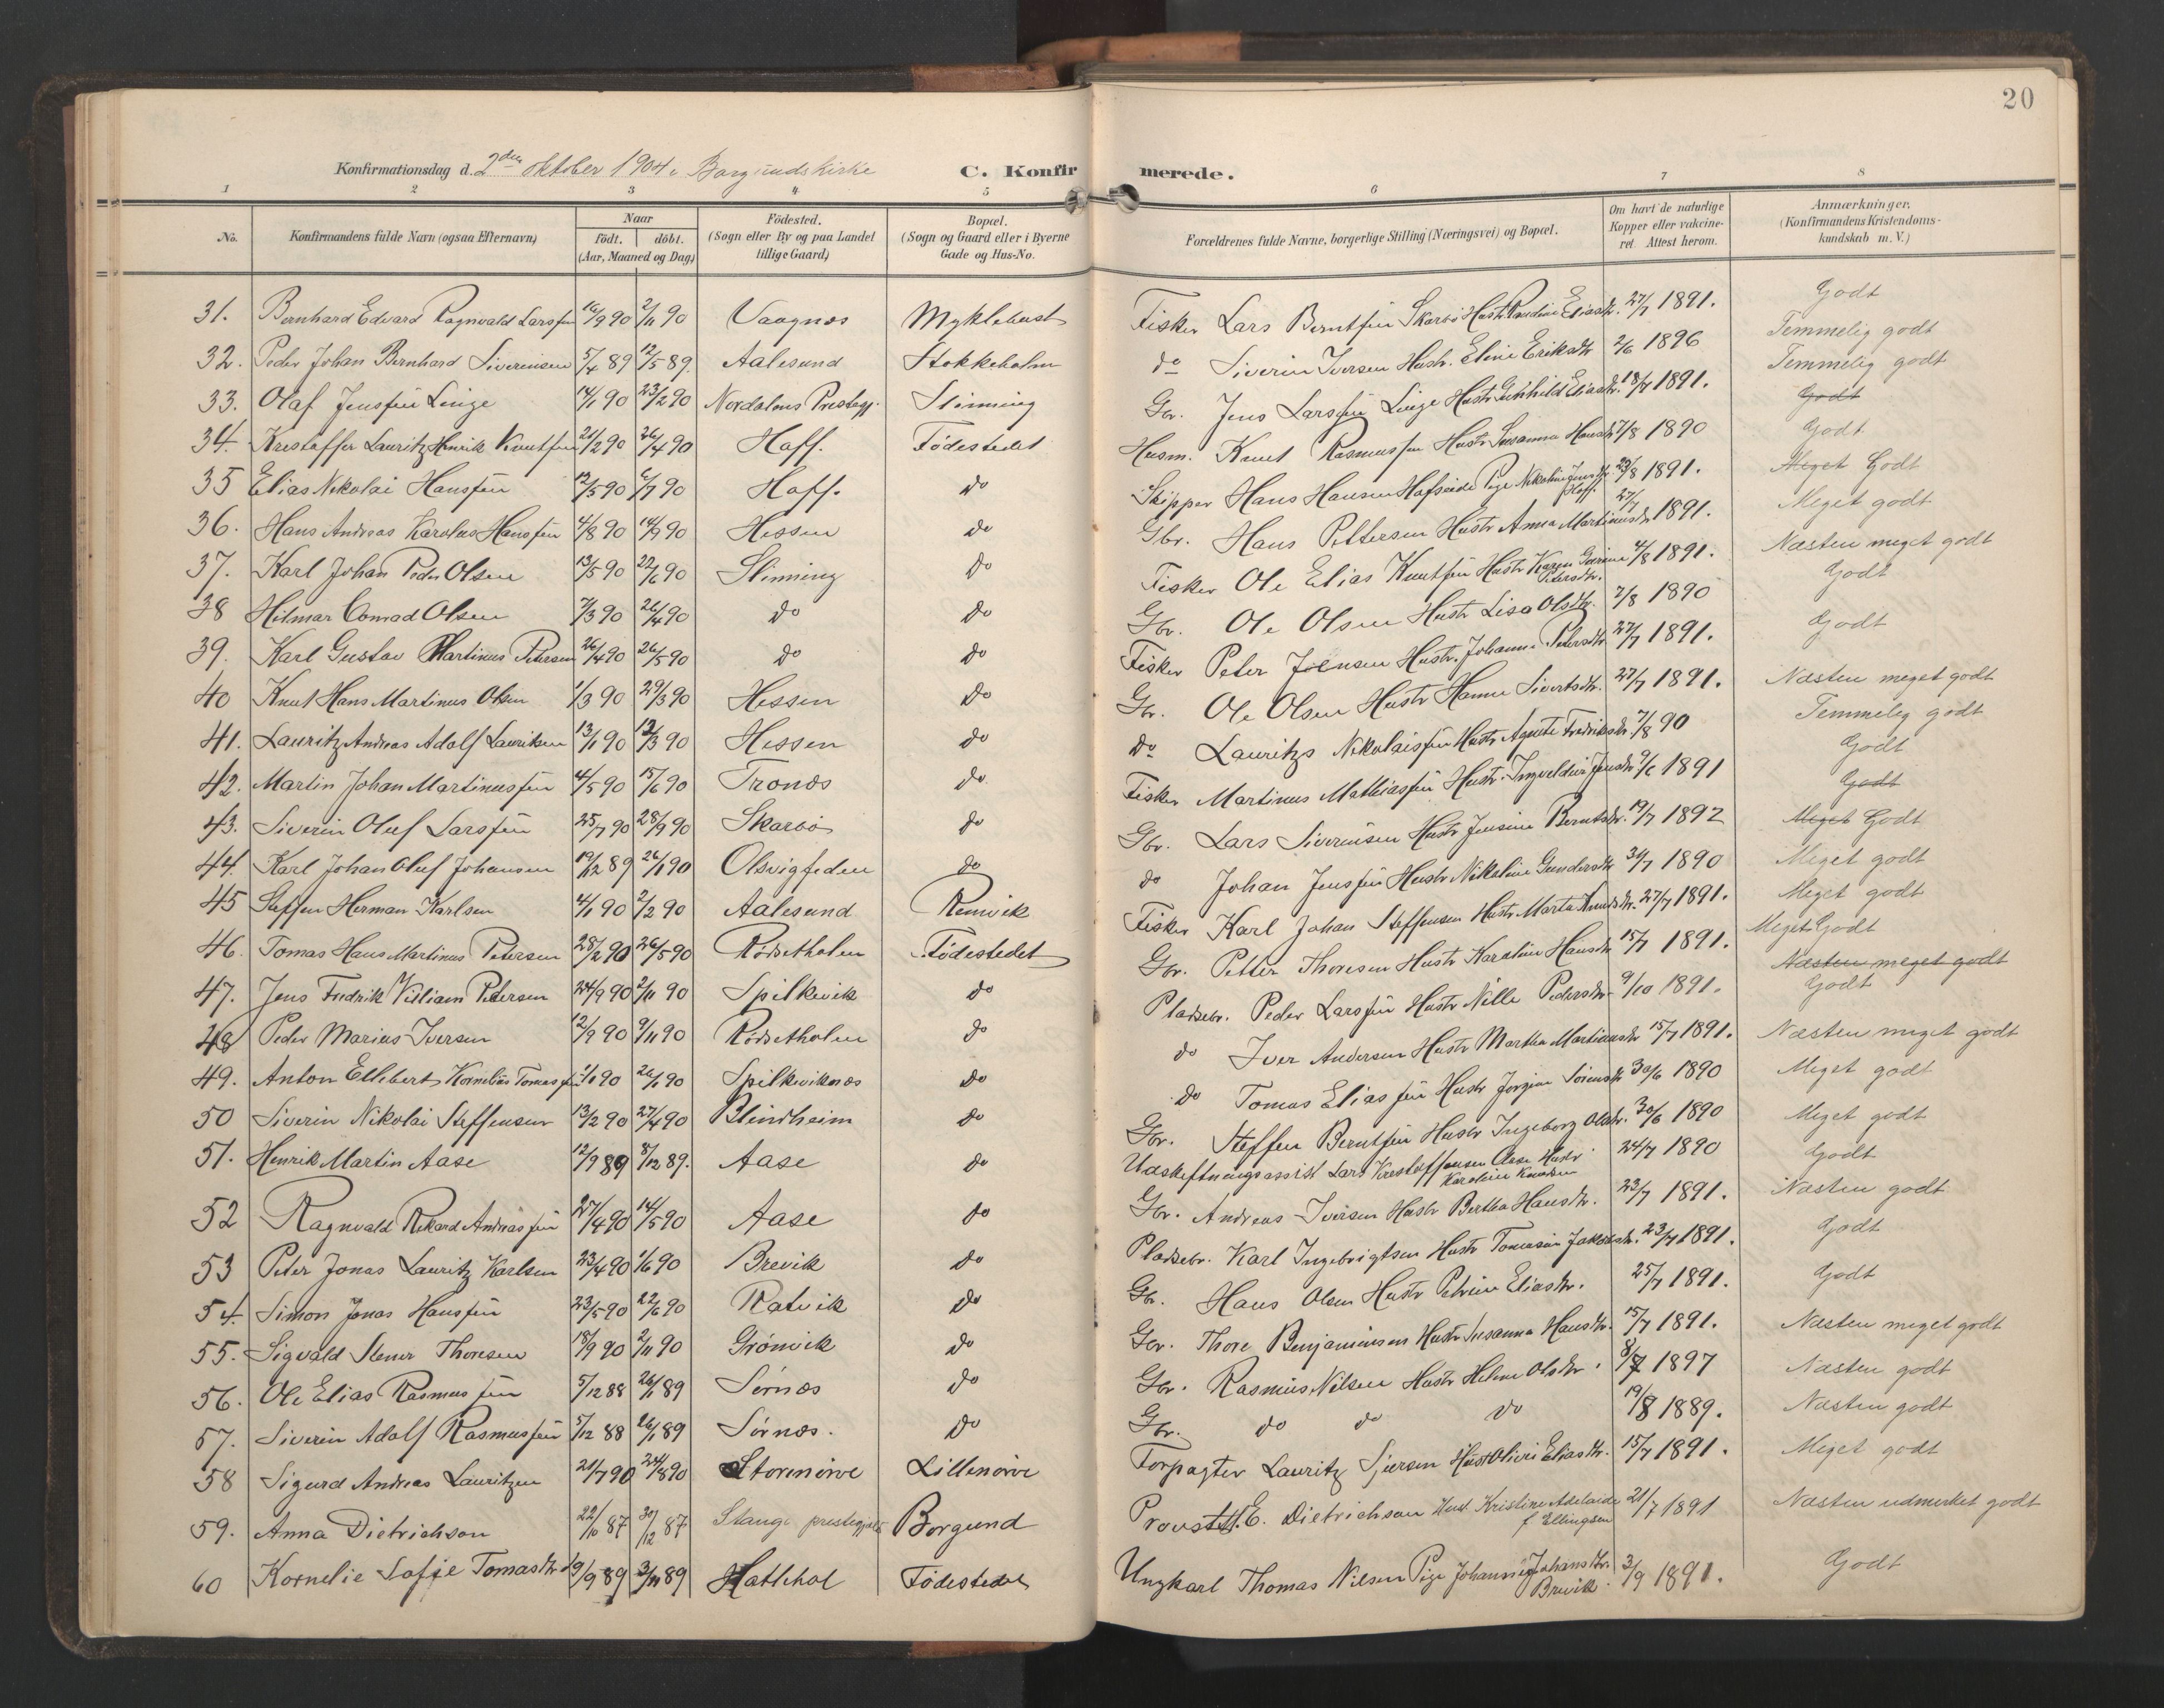 20
Konfirmationsdag d. 2den Oktober 1904 i Borgundskirke C. Konfirmerede.
1 2 3 4 5 6 7 8
No. Konfirmandens fulde Navn (ogsaa Efternavn) Naar født. døbt. (Aar, Maaned og Dag) Födested. (Sogn eller By og paa Landet tillige Gaard) Bopæl. (Sogn og Gaard eller i Byerne Gade og Hus-No. Forældrenes fulde Navne, borgerlige Stilling (Næringsvei) og Bopæl. Om havt de naturlige Kopper eller vakcineret. Attest herom. Anmærkninger. (Konfirmandens Kristendomskundskab m. V.)
31. Bernhard Edvard Ragnvald Larssen 16/9 90 2/11 90 Vaagnes Myklebust Fisker Lars Berntsen Skarbö Hustr Pauline Eliasdtr. 27/7 1891. Godt
32. Peder Johan Bernhard Siverinsen 5/4 89 12/5 89. Aalesund Stokkeholm do Siverin Iversen Hustr. Eline Eriksdtr 2/6 1896 Temmelig godt
33. Olaf Jenssen Linge 14/1 90 23/2 90 Nordalens Prestegj. Slinning Gbr. Jens Larssen Linge Hustr Eliasdtr. 18/7 1891. Temmelig godt
34. Kristoffer Lauritz Henrik Knutssen 21/2 90 26/4 90 Hoff. Födestedet Husm. Knut Rasmussen Hustr Susanna Hansdtr 7/8 1890 Godt Godt
35 Elias Nikolai Hanssen 12/5 90 6/7 90 Hoff. do Skipper Hans Hansen Hafseide Pige Nikoline Jensdtr. Hoff. 23/8 1891. Meget Godt
36. Hans Andreas Karolus Hanssen 4/8 90 14/9 90 Hessen do Gbr. Hans Pettersen Hustr Anna Martinusdtr 27/7 1891. Meget godt
37. Karl Johan Peder Olsen 13/5 90 22/6 90 Slinning do Fisker Ole Elias Knutsen Hustr Karen Petersdtr. 4/8 1891. Næsten meget godt
38 Hilmar Conrad Olsen 7/3 90 26/4 90 do do Gbr. Ole Olsen Hustr Lisa Olsdtr. 7/8 1890 Godt
39. Karl Gustav Martinus Petersen 26/4 90 26/5 90 do do Fisker Peter Joensen Hustr. Johanne Petersdtr 27/7 1891. Godt
40 Knut Hans Martinus Olsen 1/3 90 29/3 90 Hessen do Gbr. Ole Olsen Hustr Hanne Sivertsdtr. 27/7 1891. Næsten meget godt
41. Lauritz Andreas Adolf Lauritsen 13/1 90 12/3 90 Hessen do do Lauritz Nikolaissen Hustr Agnete Fredriksdtr. 7/8 90 Temmelig godt
42. Martin Johan Martinussen 4/5 90 15/6 90 Tronæs do Fisker Martinus Mathiassen Hustr. Ingvaldine Jensdtr 9/6 1891 Godt
43. Siverin Oluf Larssen 25/7 90 28/9 90 Skarbö do Gbr. Lars Siverinsen Hustr Jensine Berntsdtr. 19/7 1892 Godt Meget Godt
44. Karl Johan Oluf Johansen 19/12 89 26/1 90 Olsvigfeden do do Johan Jenssen Hustr Nikoline Gundersdtr 31/7 1890 Meget godt
45 Steffen Herman Karlsen 4/1 90 2/2 90 Aalesund Remvik Fisker Karl Johan Steffensen Hustr Marta Knutsdtr. 27/7 1891. Meget godt
46. Tomas Hans Martinus Petersen 28/2 90 26/5 90 Rödsetholen Födestedet Gbr. Petter Thoresen Hustr Karoline Hansdtr 15/7 1891. Meget Godt
47. Jens Fredrik William Petersen 24/9 90 2/11 90 Spilkevik do Pladsebr. Peder Larssen Hustr Nille Pedersdtr 9/10 1891. Næsten meget godt Godt
48 Peder Marius Iversen 12/9 90 9/11 90 Rödsetholen do do Iver Andersen Hustr Martha Martinusdtr 15/7 1891. Næsten meget godt
49. Anton Ellebert Kornelius Tomassen 1/1 90 26/1 90 Spilkeviknes do do Tomas Eliassen Hustr Jorgine Sörensdtr 30/6 1890 Meget godt
50 Siverin Nikolai Steffensen 13/2 90 27/4 90 Blindheim do Gbr. Steffen Berntsen Hustr Ingeborg Olsdtr. 30/6 1890 Meget godt
51. Henrik Martin Aase 12/9 89 8/12 89. Aase do Udskiftningsassist Lars Kristoffersen Aase Hustr Karoline Knudsen 24/7 1890 Godt
52 Ragnvald Rikard Andreassen 27/4 90 14/5 90 Aase do Gbr. Andreas Iversen Hustr Bertha Hansdtr. 23/7 1891. Næsten godt
53 Peter Jonas Lauritz Karlsen 23/4 90 1/6 90 Brevik do Pladsebr. Karl Ingebrigtsen Hustr Tomasine Jakobsdtr. 23/7 1891. Godt
54. Simon Jonas Hanssen 23/5 90 22/6 90 Ratvik do Gbr. Hans Olsen Hustr Petrine Eliasdtr. 25/7 1891. Godt
55. Sigvald Stener Thoresen 18/9 90 2/11 90 Grönvik do Gbr. Thore Benjaminsen Hustr Susanna Hansdtr. 15/7 1891. Næsten meget godt
56. Ole Elias Rasmussen 5/12 88 26/1 89 Sörnæs do Gbr. Rasmus Nilsen Hustr Helene Olsdtr. 8/7 1897 Næsten godt
57. Siverin Adolf Rasmussen 5/12 88 26/1 89 Sörnæs. do Gbr. do do do 19/8 1889. Næsten godt
58 Sigurd Andreas Lauritzen 21/7 90 24/8 90 Storenörve Lillenörve Forpagter Lauritz Sjursen Hustr Eliasdtr. 15/7 1891. Meget godt
59. Anna Dietrichson 22/10 87 30/12 87 Stange prestegjeld Borgund Provst E. Dietrichson Hust. Kristine Adelaide f. Ellingsen 21/7 1891 Næsten udmerket godt
60 Kornelie Sofie Tomasdtr 19/9 89 3/11 89 Hatlehol Födestedet Ungkarl Thomas Nilsen Pige Johannsdtr. Brevik 3/9 1891. Godt